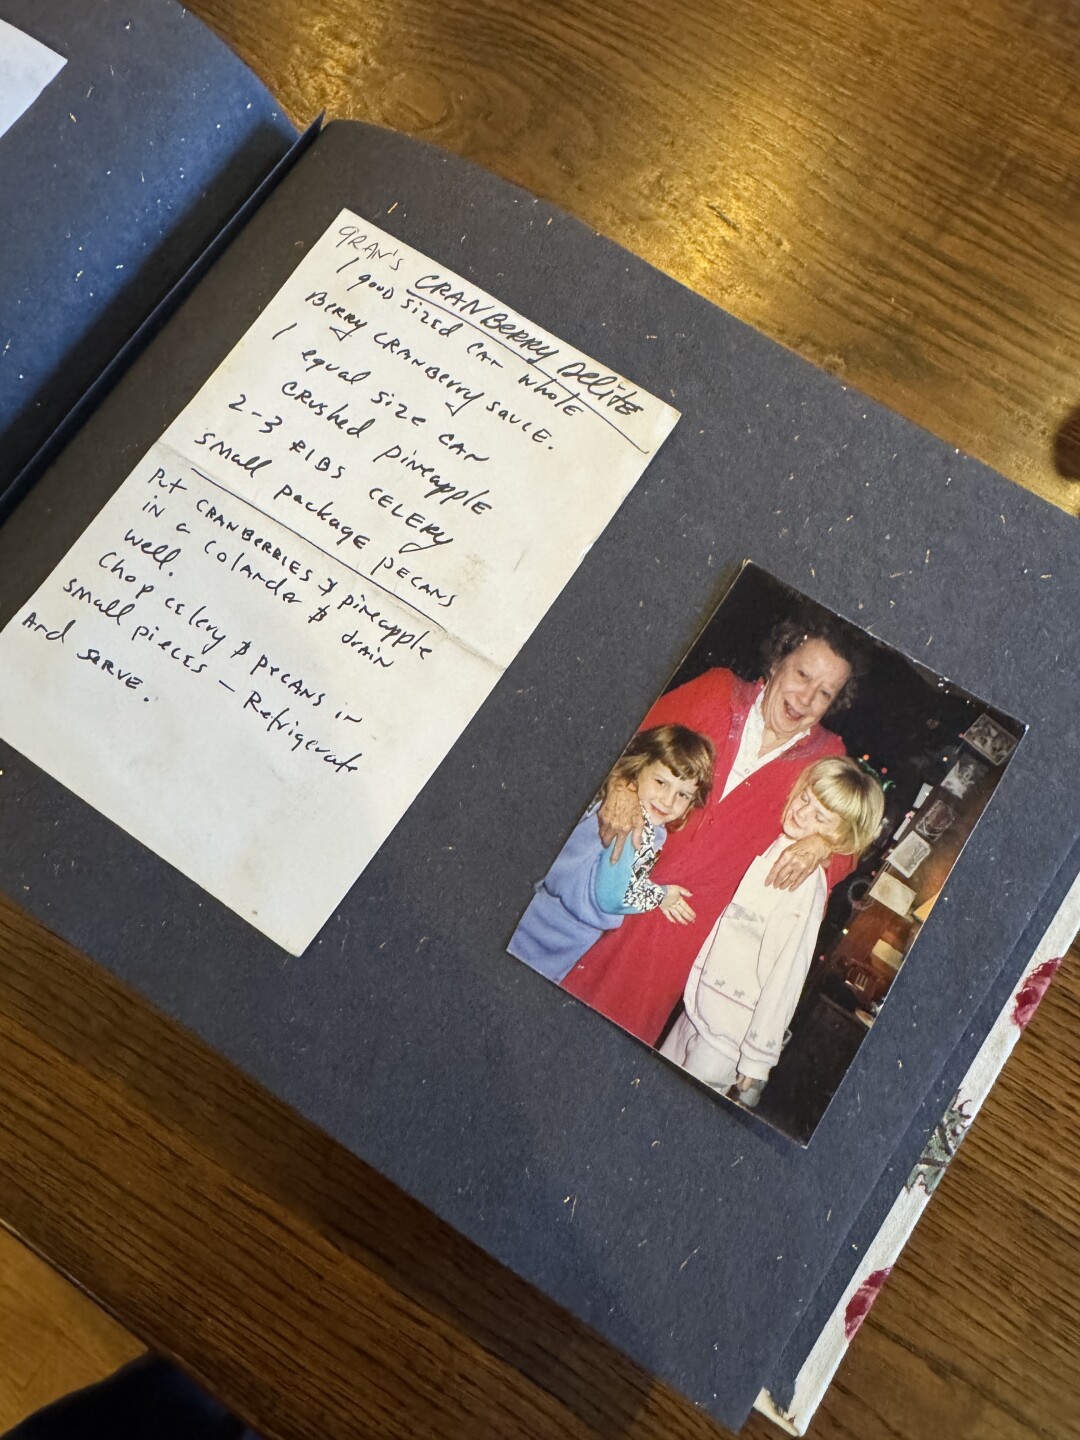 GRAN'S CRANBERRY DELITE
1 good sized can whole
BERRY CRANBERRY SAUCE.
1 equal size can
crushed pineapple
2-3 RIBS CELERY
small package pecans
Put CRANBERRIES & pineapple
in a colander & drain
well.
Chop celery & pecans in
small pieces - Refrigerate
And serve.